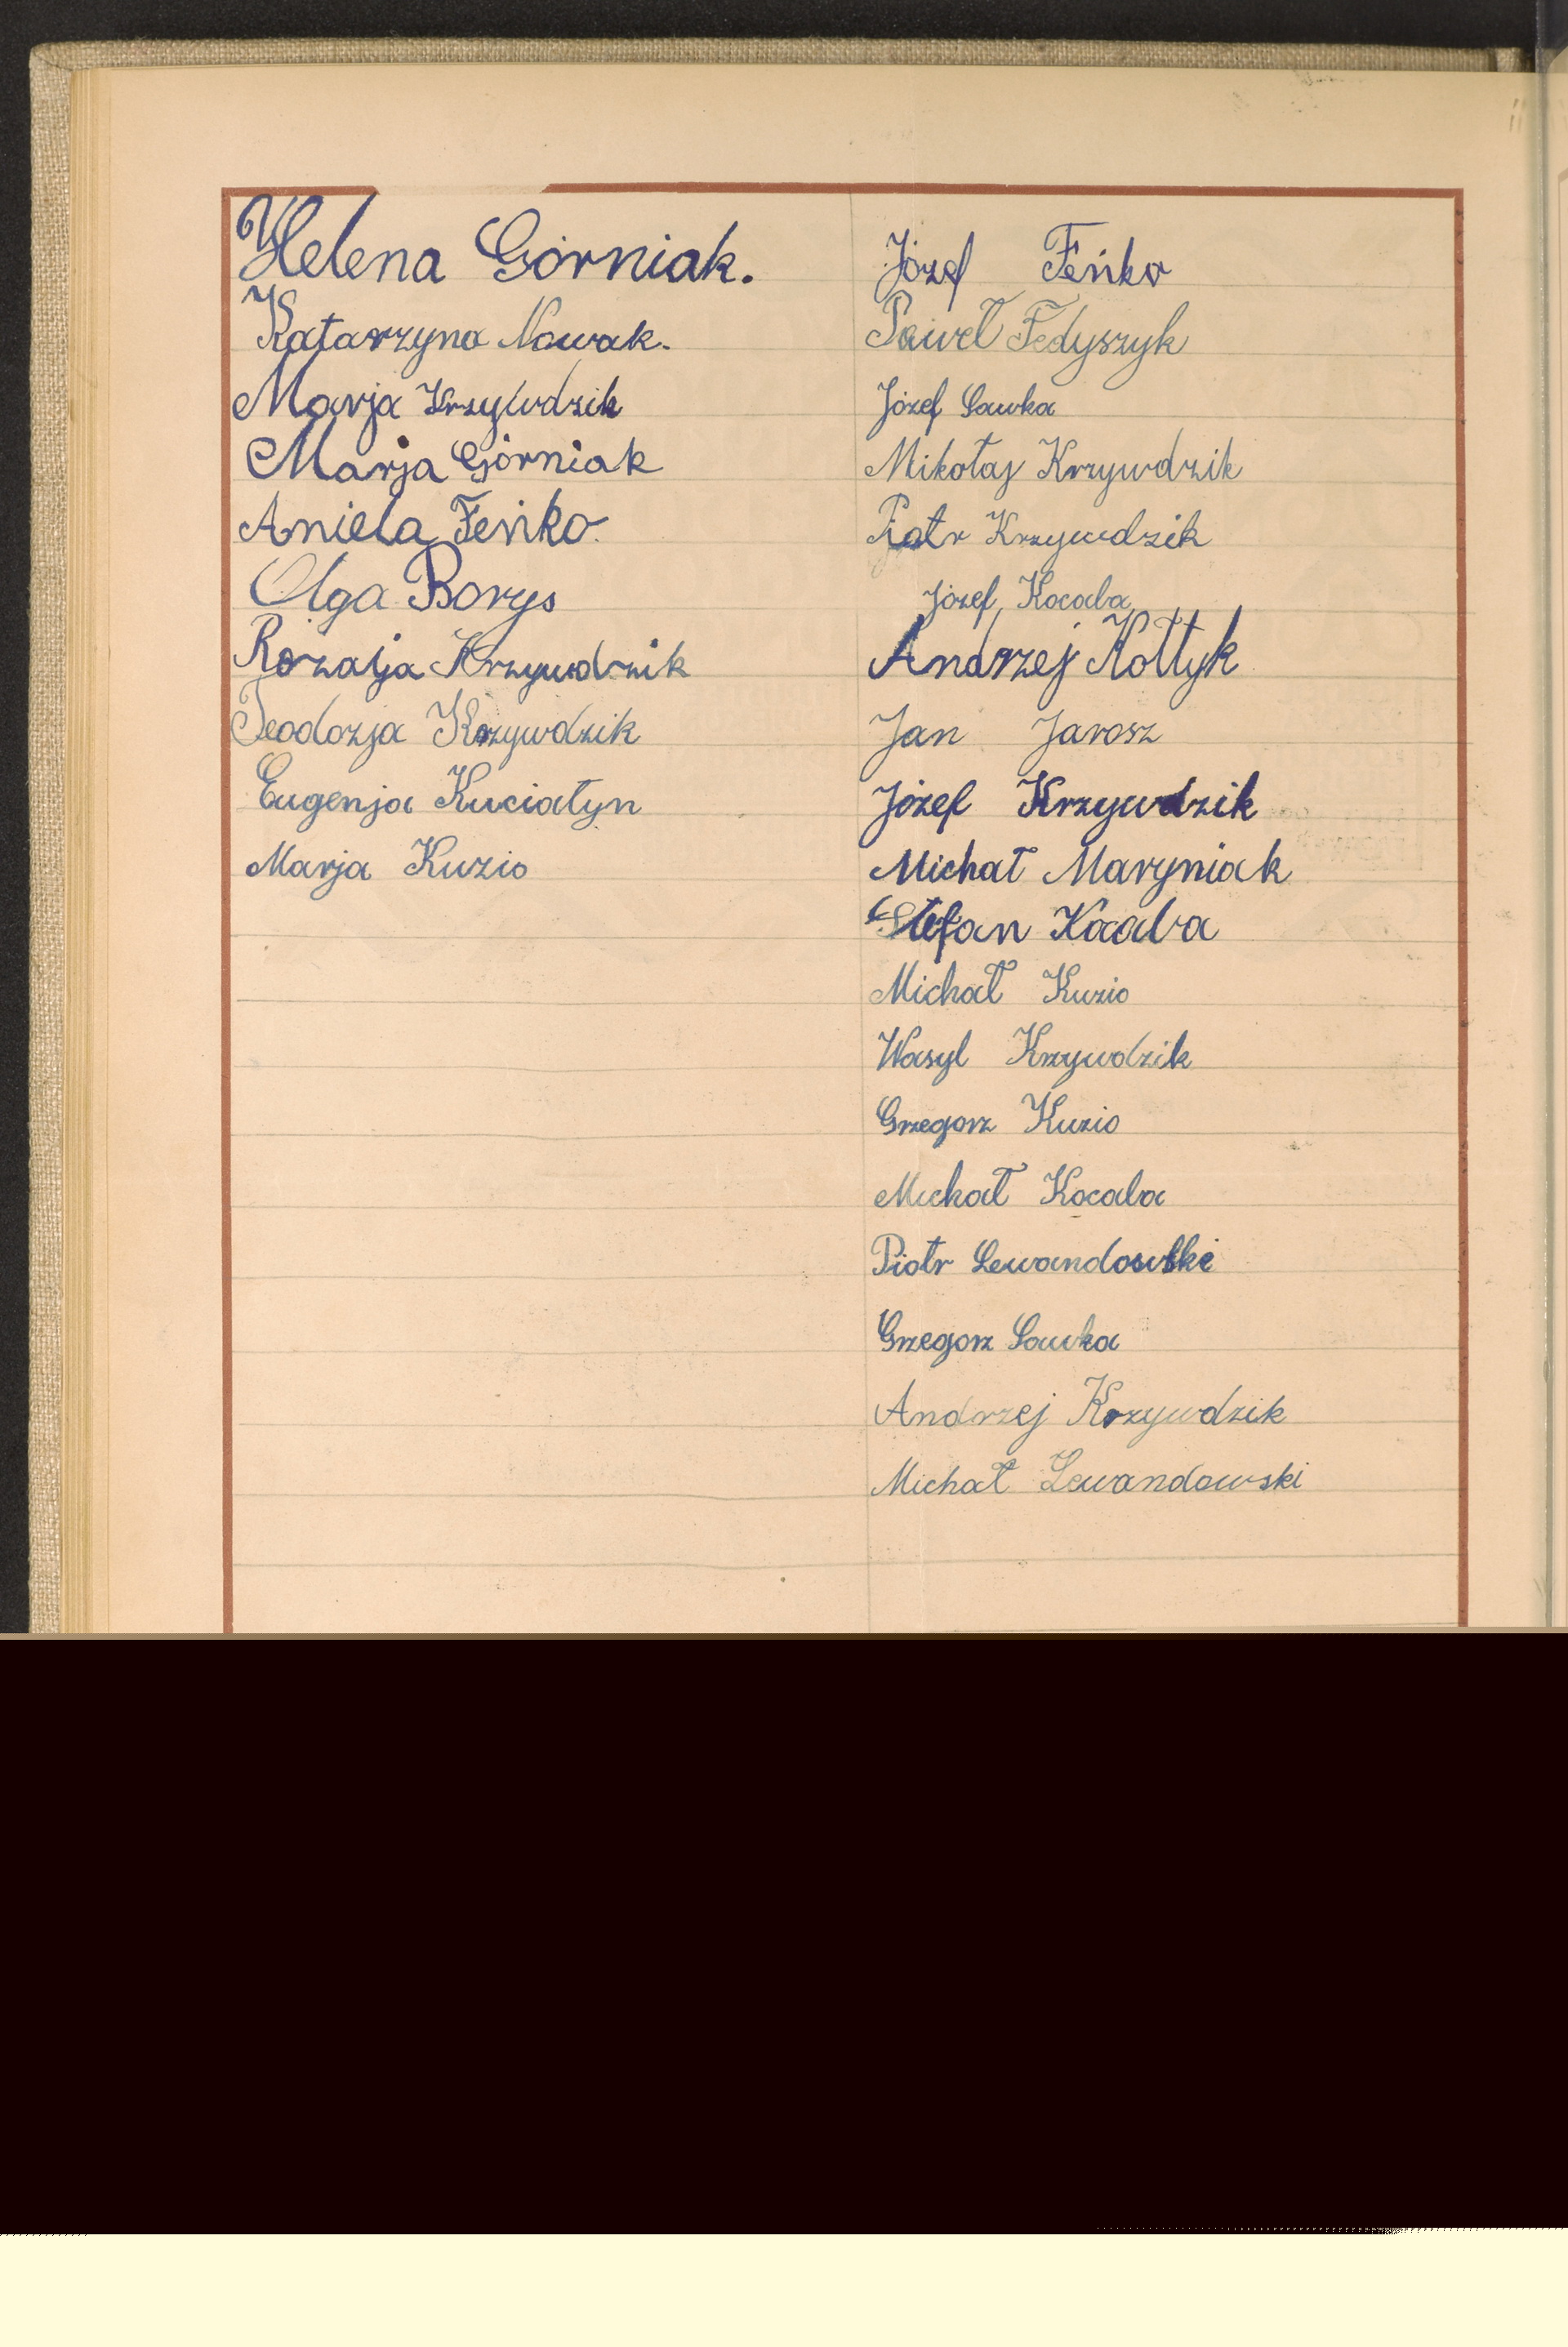 Helena Górniak.
Katarzyna Nowak.
Marja Krzywdzik
Marja Górniak
Aniela Feńko
Olga Borys
Rozalja Krzywdzik
Teodozja Krzywdzik
Eugenja Kuciatyn
Marja Kuzio
Józef Feńko
Paweł Fedyszyk
Józef Sawka
Mikołaj Krzywdzik
Piotr Krzywdzik
Józef Kocaba
Andrzej Kołtyk
Jan Jarosz
Józef Krzywdzik
Michał Maryniak
Stefan Kocaba
Michał Kuzio
Wasyl Krzywdzik
Grzegorz Kuzio
Michał Kocaba
Piotr Lewandowski
Grzegorz Sawka
Andrzej Krzywdzik
Michał Lewandowski